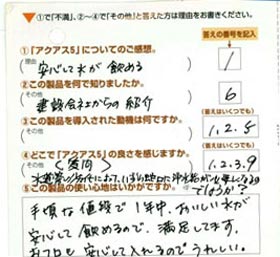 ①で「不満」、②〜④で「その他」と答えた方は理由をお書きください。
答えの番号を記入
①「アクアス5」についてのご感想。
理由
安心して水が飲める
1
②この製品を何で知りましたか。
その他
建設会社からの紹介
6
③この製品を導入された動機は何ですか。
その他
(答えはいくつでも)
1.2.5
④どこで「アクアス5」の良さを感じますか。
(答えはいくつでも)
その他
(質問)
1.2.3.9
水道管の
において、いずれ地口に浄水器が
なるの
でしょうか?
⑤この製品の使い心地はいかがですか?
手頃な値段で1年中、おいしい水が
安心して飲めるので、満足してます。
お風呂も安心して入れるのでうれしい。